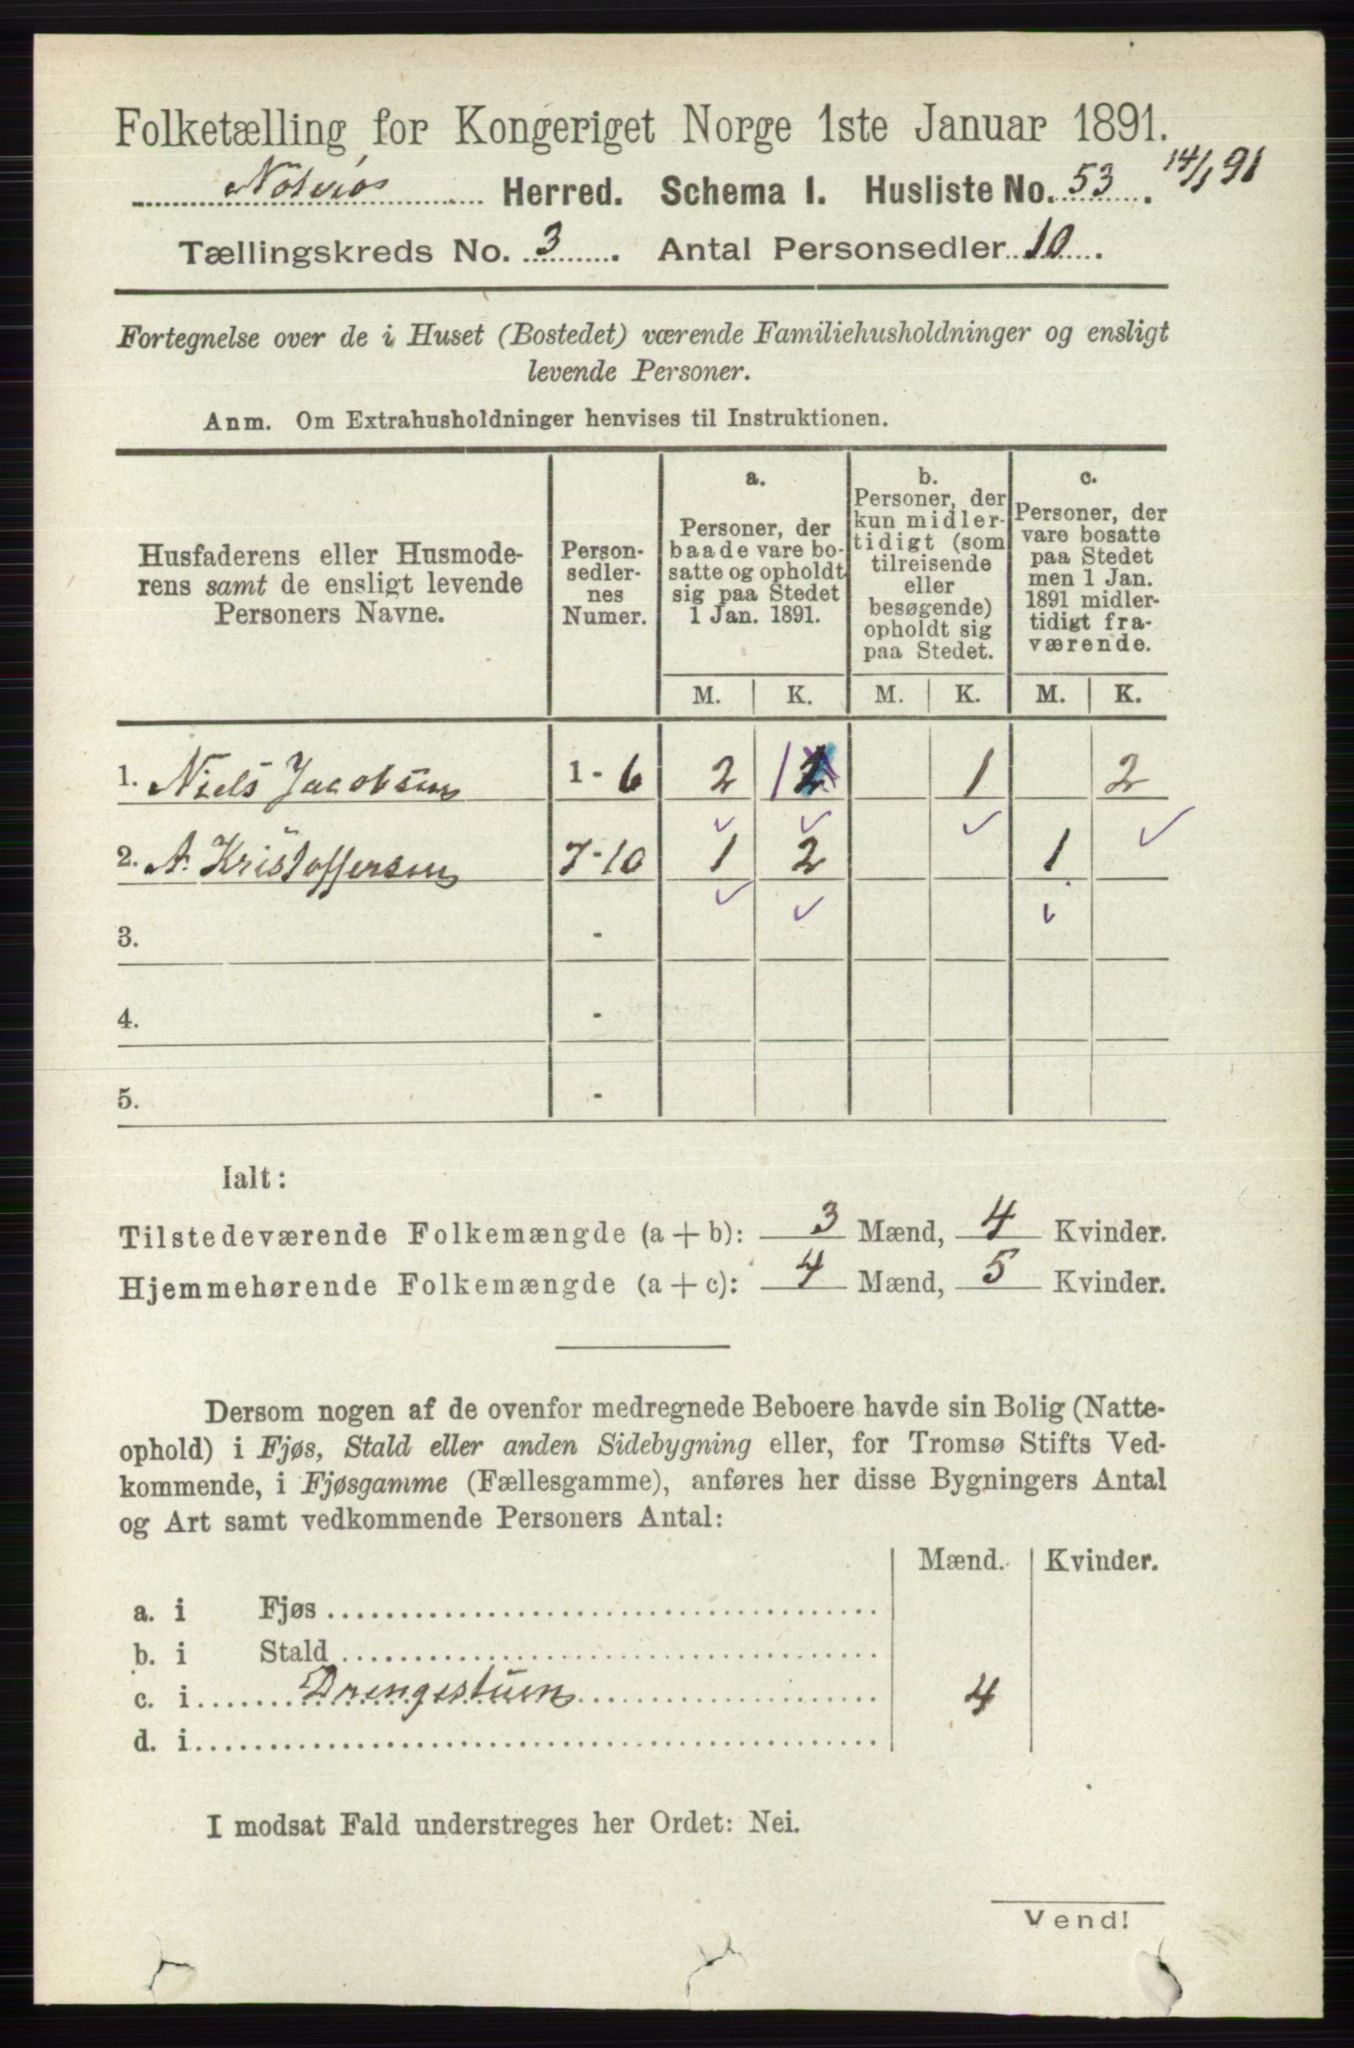 Folketælling for Kongeriget Norge 1ste Januar 1891.
14/1 91
Herred. Schema I. Husliste No. 53.
Tællingskreds No. 3. Antal Personsedler 10.
Fortegnelse over de i Huset (Bostedet) værende Familiehusholdninger og ensligt
levende Personer.
Anm. Om Extrahusholdninger henvises til Instruktionen.
Husfaderens eller Husmode-
rens samt de ensligt levende
Personers Navne.
Person-
sedler-
nes
Numer.
a.
Personer, der
baade vare bo-
satte og opholdt
sig paa Stedet
1 Jan. 1891.
b.
Personer, der
kun midler-
tidigt (som
tilreisende
eller
besøgende)
opholdt sig
paa Stedet.
c.
Personer, der
vare bosatte
paa Stedet
men 1 Jan.
1891 midler-
tidigt fra-
værende.
M. K. M. K. M. K.
1. Niels Jacobsen 1 - 6 2 1 2 1 2
2. A. Kristoffersen 7 - 10 1 2 1
3. -
4. -
5. -
Ialt:
Tilstedeværende Folkemængde (a + b): 3 Mænd, 4 Kvinder.
Hjemmehørende Folkemængde (a + c): 4 Mænd, 5 Kvinder.
Dersom nogen af de ovenfor medregnede Beboere havde sin Bolig (Natte-
ophold) i Fjøs, Stald eller anden Sidebygning eller, for Tromsø Stifts Ved-
kommende, i Fjøsgamme (Fællesgamme), anføres her disse Bygningers Antal
og Art samt vedkommende Personers Antal:
Mænd. Kvinder.
a. i Fjøs
b. i Stald
c. i Drengestuen 4
d. i
I modsat Fald understreges her Ordet: Nei.
Vend!